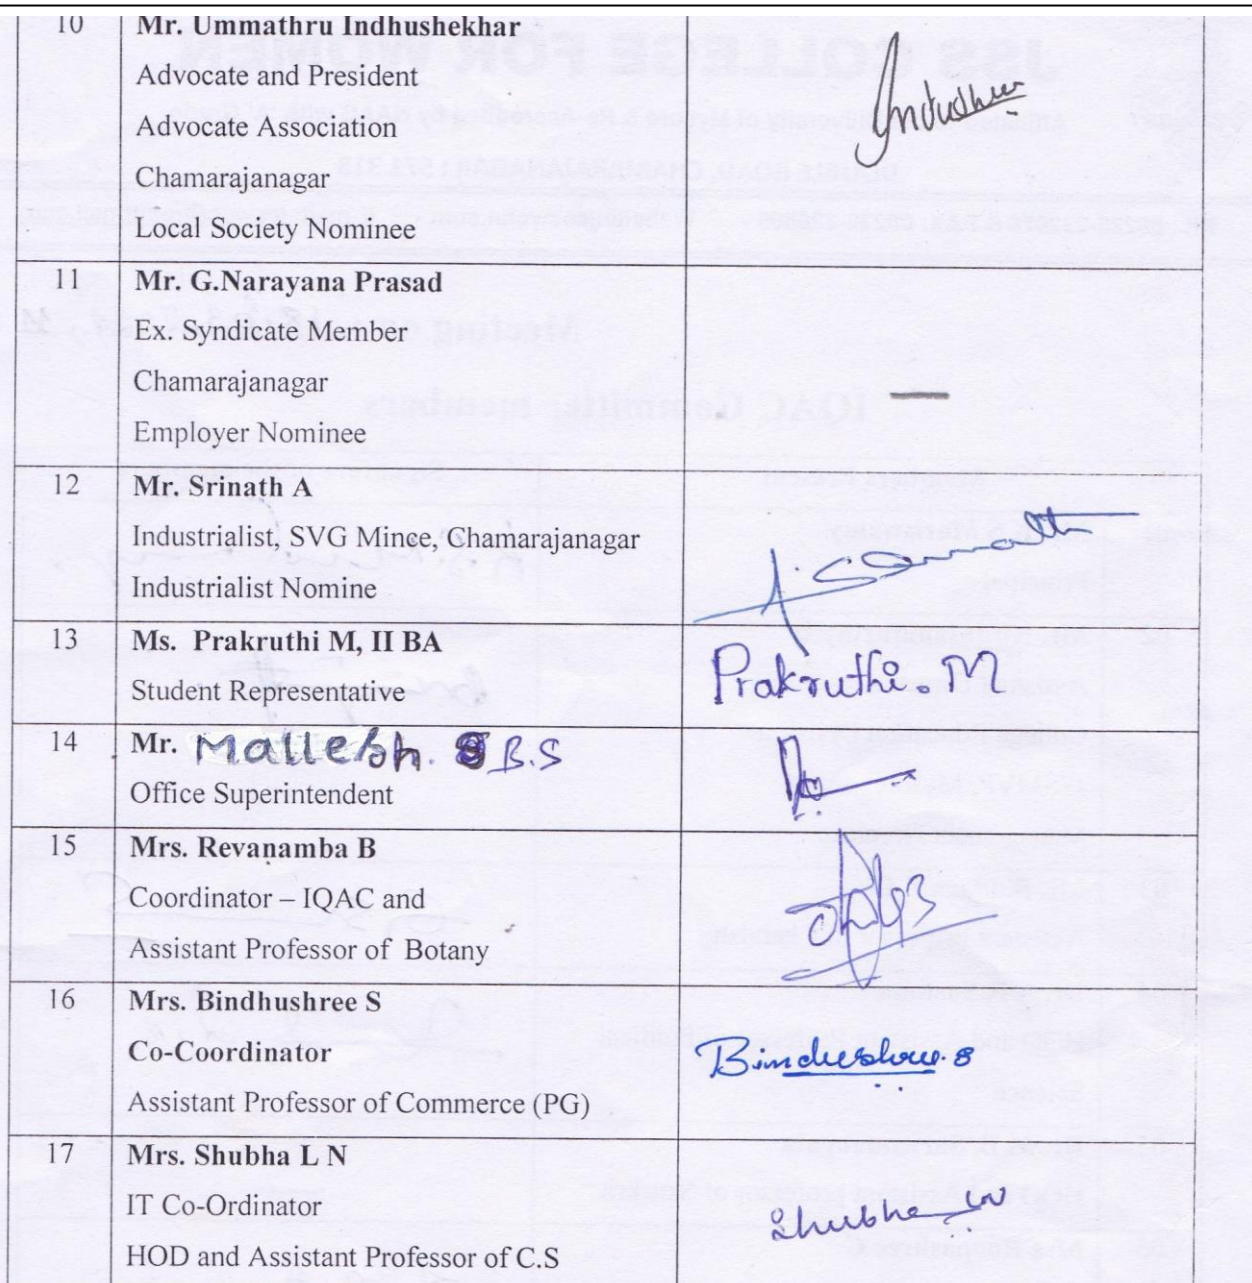 10 Mr. Ummathru Indhushekhar
Advocate and President
Advocate Association
Chamarajanagar
Local Society Nominee
Indudhar
11 Mr. G.Narayana Prasad
Ex. Syndicate Member
Chamarajanagar
Employer Nominee
—
12 Mr. Srinath A
Industrialist, SVG Mince, Chamarajanagar
Industrialist Nomine
13 Ms. Prakruthi M, II BA
Student Representative
Prakruthi. M
14 Mr. Mallesh. B.S
Office Superintendent
15 Mrs. Revanamba B
Coordinator – IQAC and
Assistant Professor of Botany
16 Mrs. Bindhushree S
Co-Coordinator
Assistant Professor of Commerce (PG)
Bindushree. S
17 Mrs. Shubha L N
IT Co-Ordinator
HOD and Assistant Professor of C.S
Shubha LN